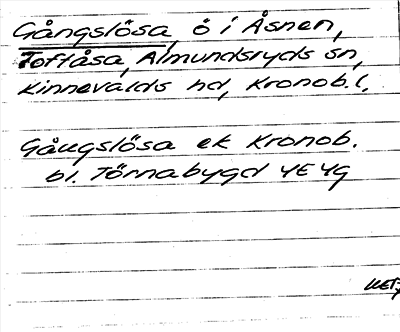 Gångslösa, ö i Åsnen,
Toftåsa, Almundsryds sn,
Kinnevalds hd, Kronob.l.
Gångslösa ek Kronob.
bl. Törnabygd 4E 4g